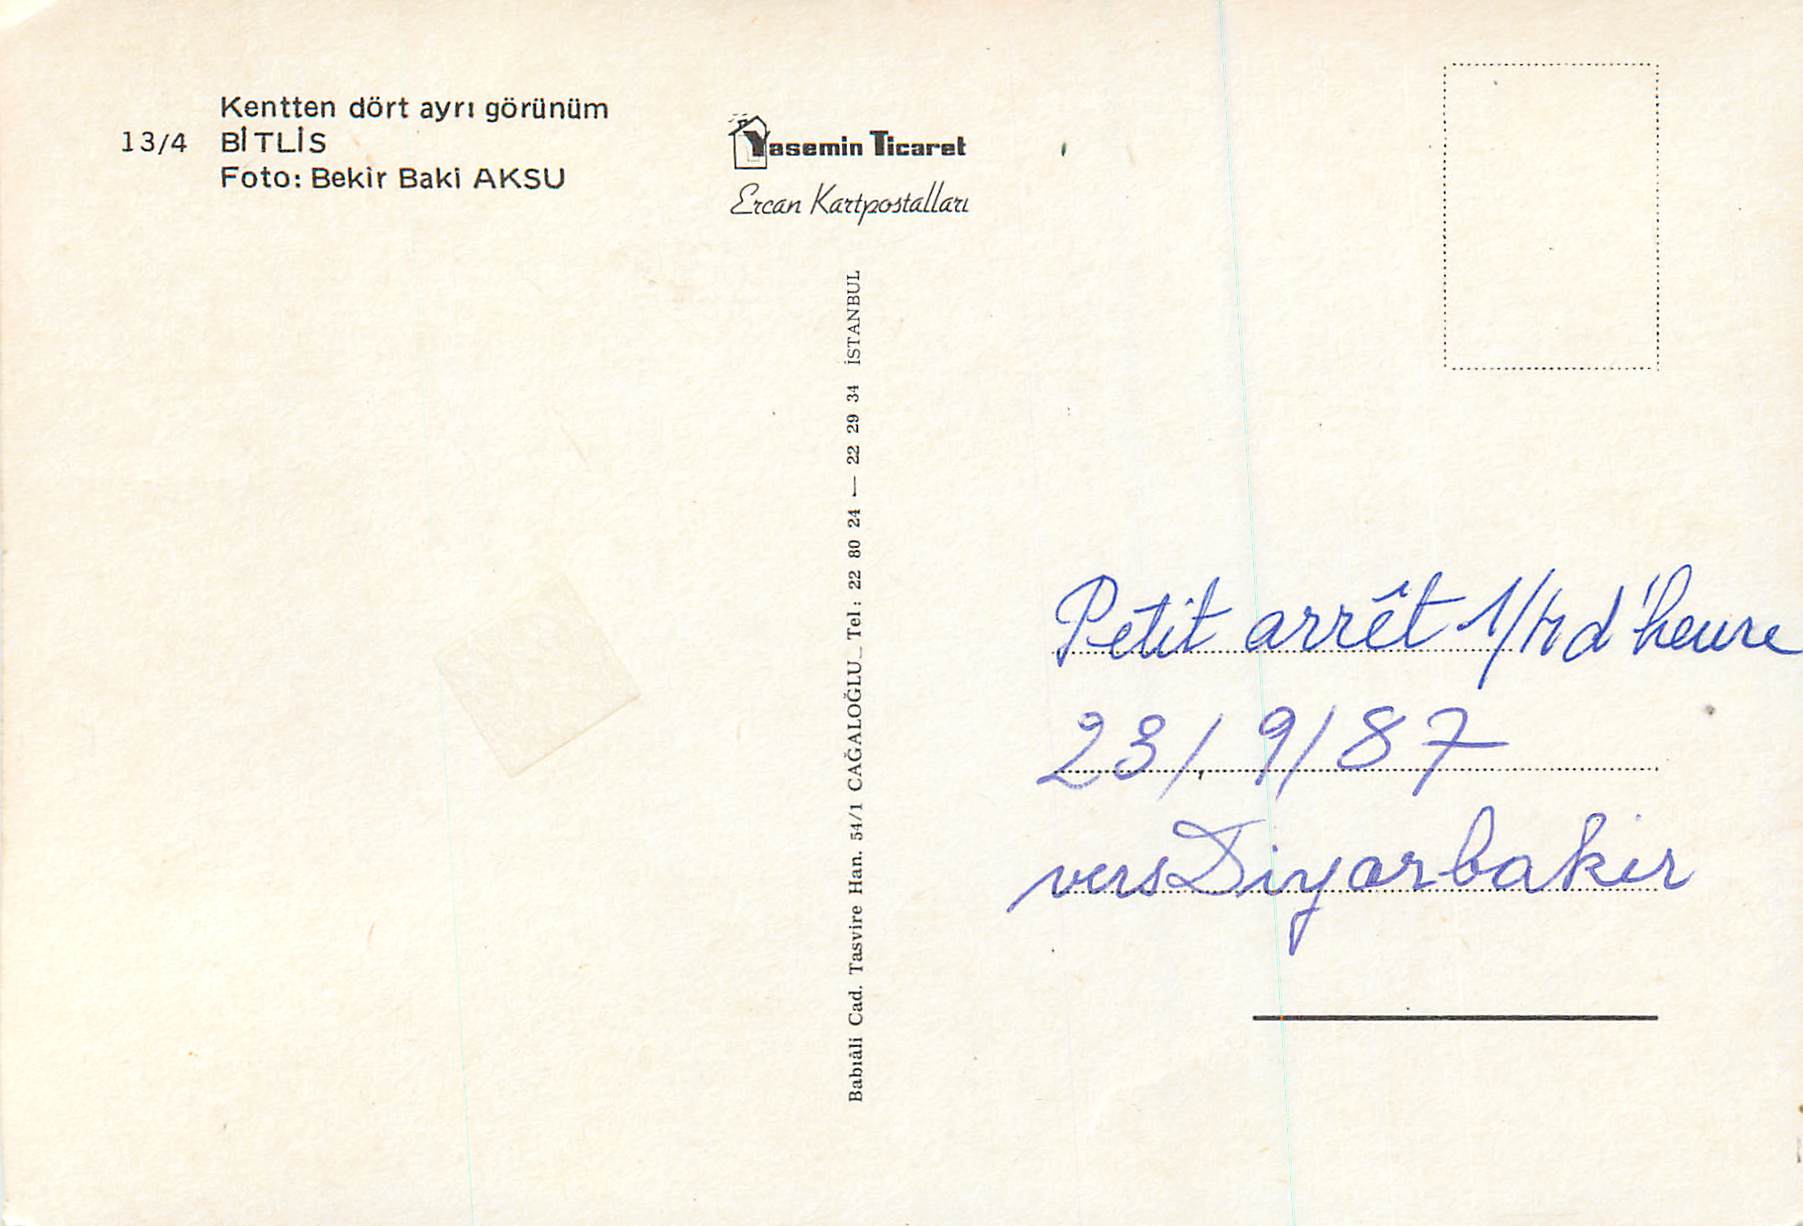 Kentten dört ayrı görünüm
13/4 BİTLİS
Foto: Bekir Baki AKSU
Yasemin Ticaret
Ercan Kartpostalları
Babıâli Cad. Tasvire Han. 54/1 CAĞALOĞLU_ Tel: 22 80 24 — 22 29 34 İSTANBUL
Petit arrêt 1/4 d'heure
23/9/87
vers Diyarbakir